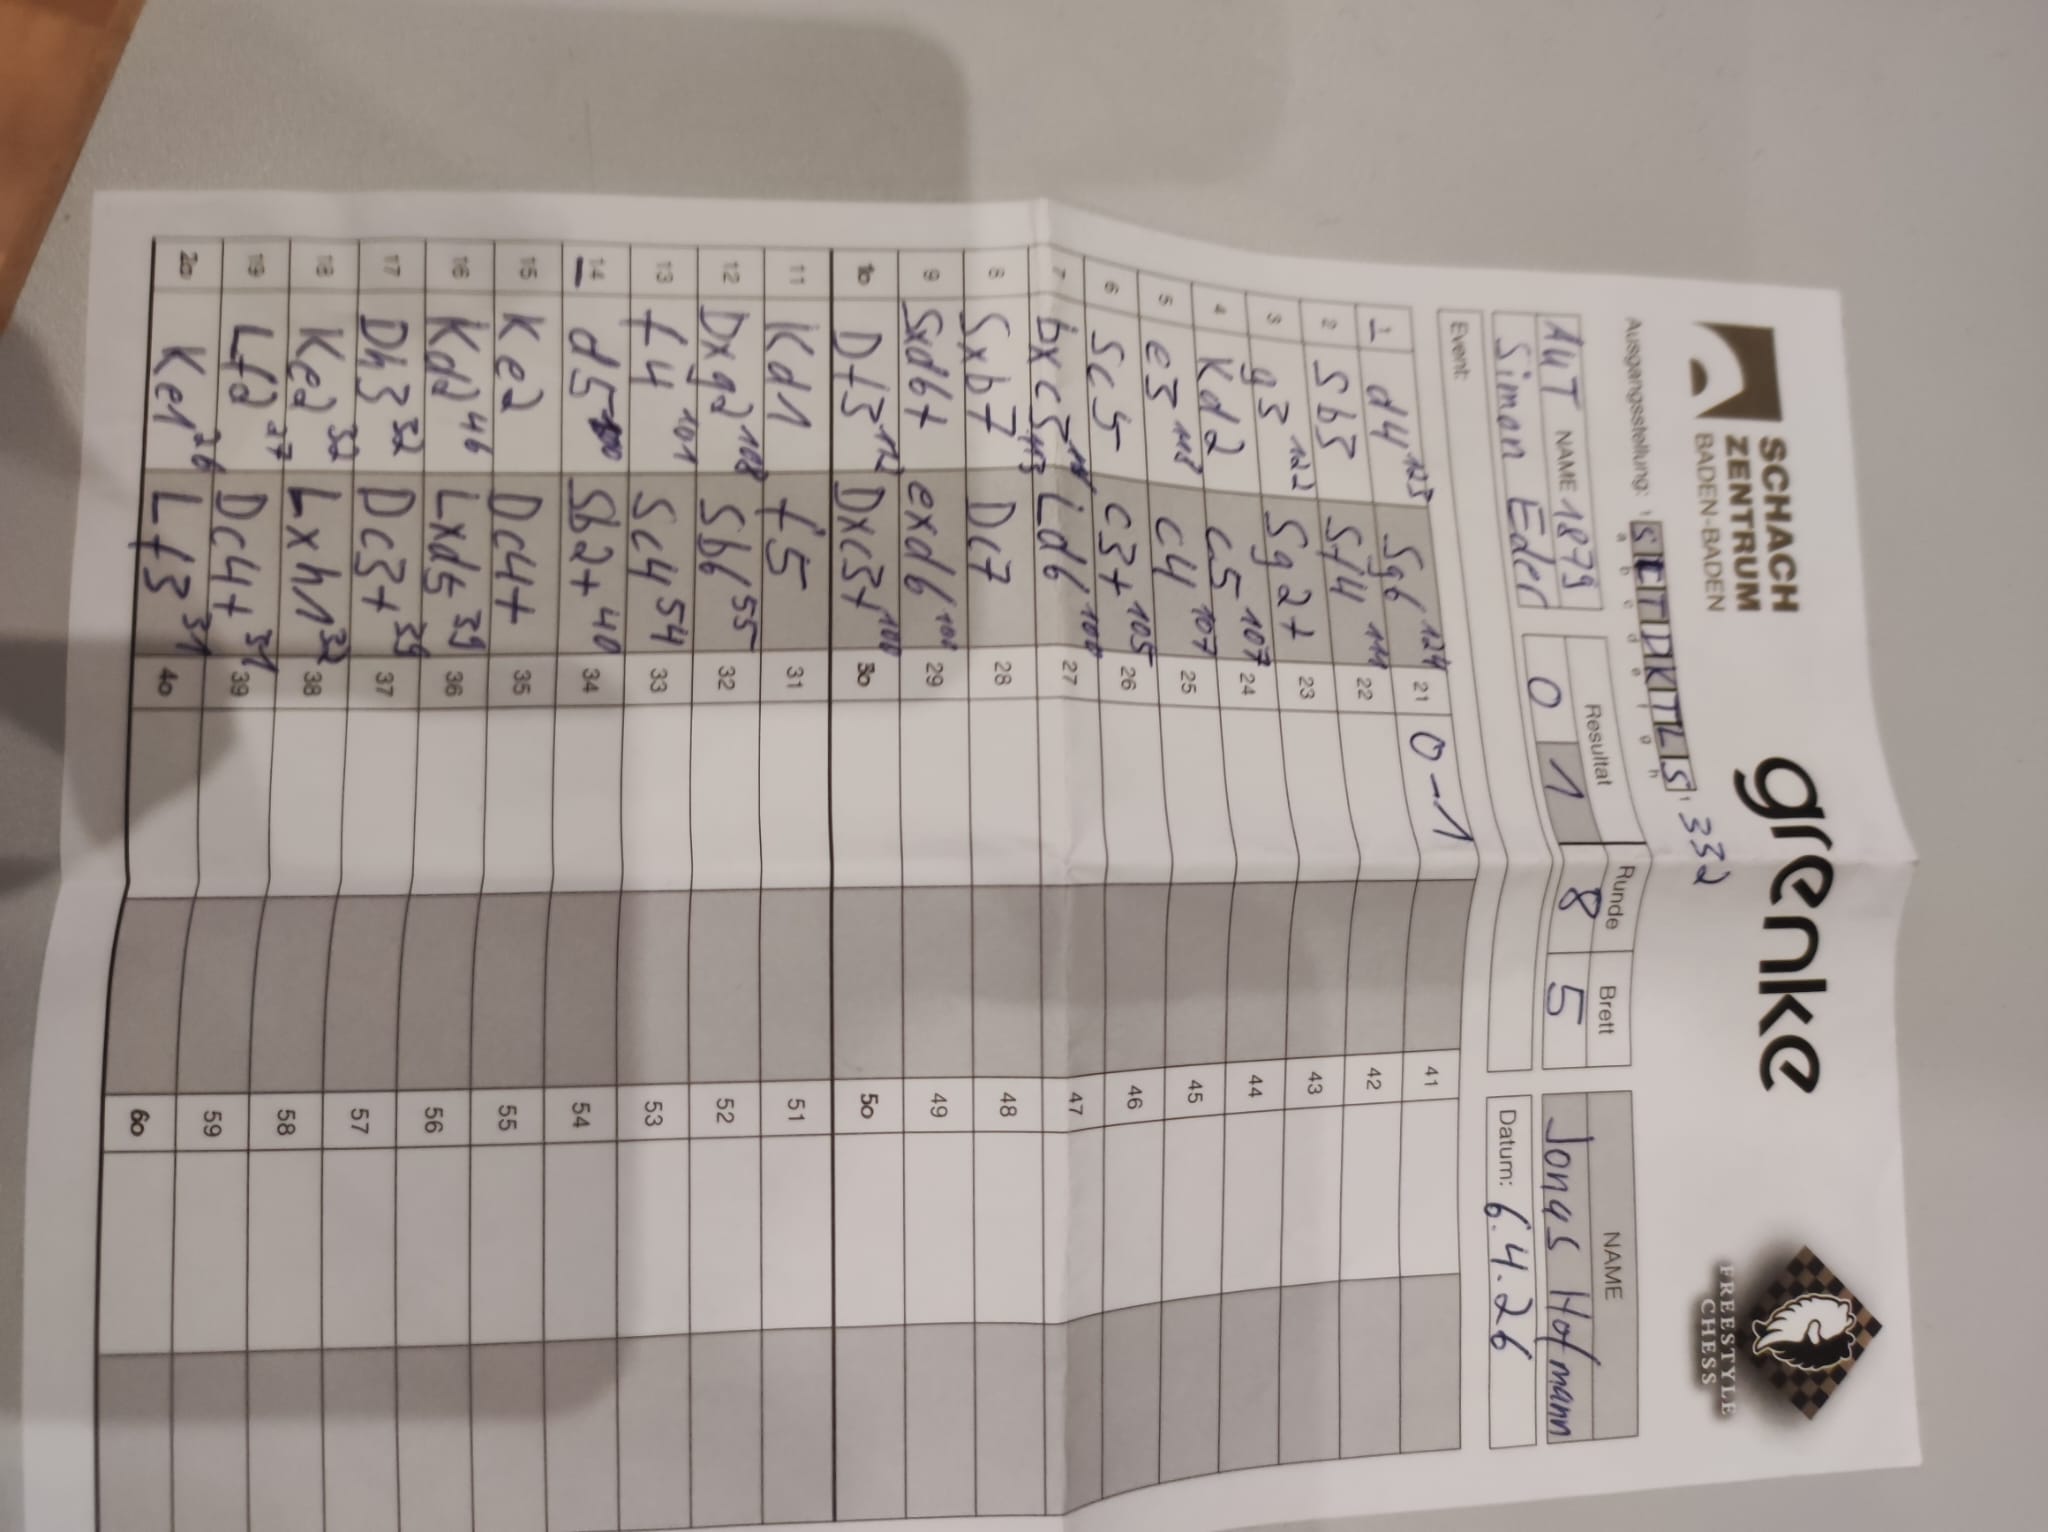 SCHACH
ZENTRUM
BADEN-BADEN
grenke
FREESTYLE
CHESS
Ausgangsstellung: 332
a b c d e f g h
AUT NAME 1879
Resultat Runde Brett NAME
Simon Eder 0 1 8 5 Jonas Hofmann
Event: Datum: 6.4.26
1 d4 123 Sg6 124 21 0-1 41
2 Sb3 Sf4 111 22 42
3 g3 122 Sg2+ 23 43
4 Kd2 c5 107 24 44
5 e3 118 c4 107 25 45
6 Sc5 c3+ 105 26 46
7 bxc3 Ld6 100 27 47
8 Sxb7 113 Dc7 28 48
9 Sxd6+ exd6 100 29 49
10 Df3 112 Dxc3+ 100 30 50
11 Kd1 f5 31 51
12 Dxg2 108 Sb6 55 32 52
13 f4 101 Sc4 54 33 53
14 d5 Sb2+ 40 34 54
15 Ke2 Dc4+ 35 55
16 Kd2 46 Lxd5 39 36 56
17 Dh3 32 Dc3+ 39 37 57
18 Ke2 32 Lxh1 32 38 58
19 Lf2 27 Dc4+ 31 39 59
20 Ke1 26 Lf3 31 40 60